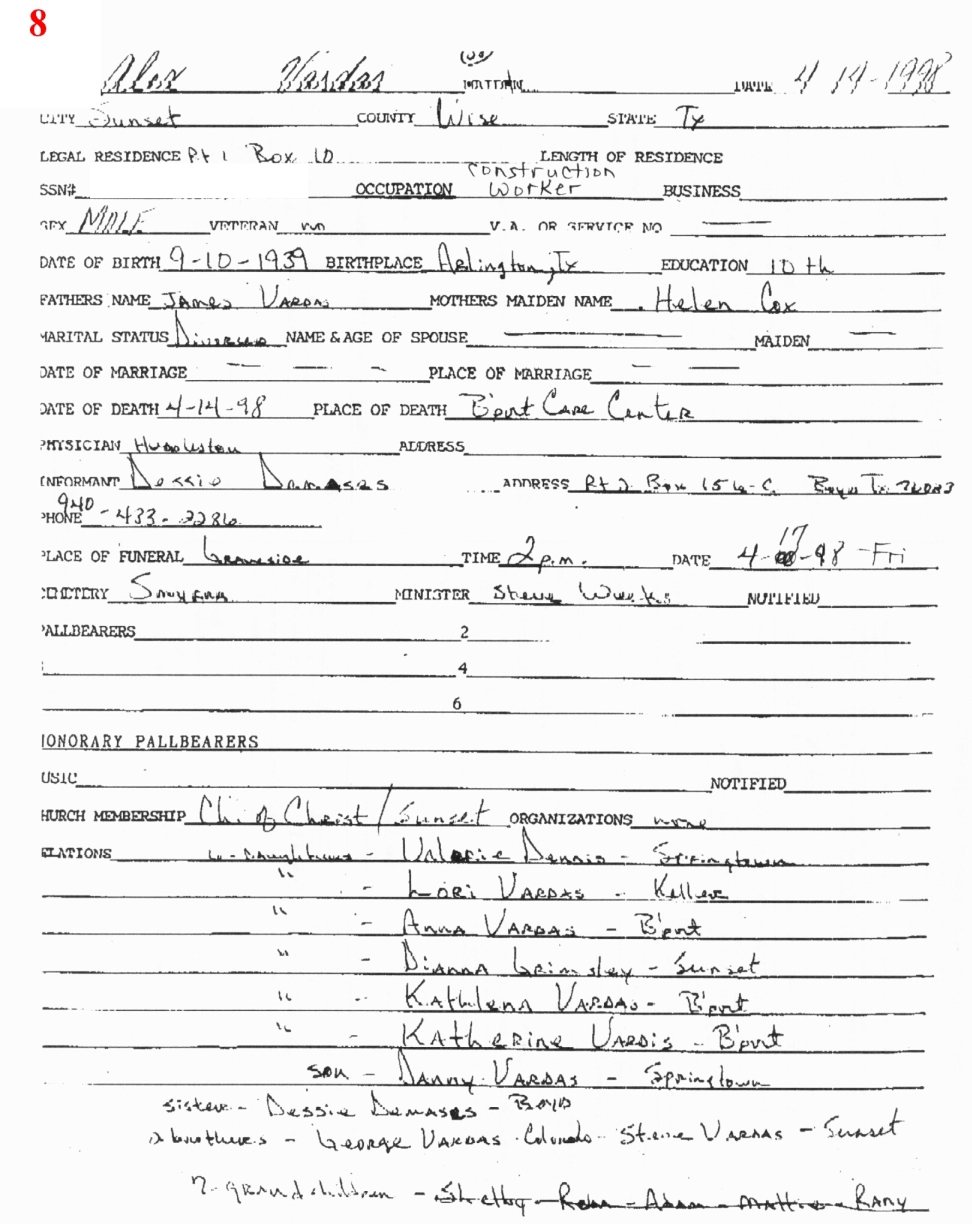 8
Alex Vardas DATE 4-14-1998
CITY Sunset COUNTY Wise STATE Tx
LEGAL RESIDENCE Rt 1 Box 10 LENGTH OF RESIDENCE
SSN# OCCUPATION Construction Worker BUSINESS
SEX MALE VETERAN no V.A. OR SERVICE NO
DATE OF BIRTH 9-10-1939 BIRTHPLACE Arlington, Tx EDUCATION 10th
FATHERS NAME James Vardas MOTHERS MAIDEN NAME Helen Cox
MARITAL STATUS Divorced NAME & AGE OF SPOUSE MAIDEN
DATE OF MARRIAGE PLACE OF MARRIAGE
DATE OF DEATH 4-14-98 PLACE OF DEATH B'port Care Center
PHYSICIAN ADDRESS
INFORMANT Dessie Damases ADDRESS Rt 2 Box 156-C Boyd Tx 76023
PHONE 940-433-2286
PLACE OF FUNERAL Graveside TIME 2 p.m. DATE 4-17-98 -Fri
CEMETERY Smyrna MINISTER Steve Weeks NOTIFIED
PALLBEARERS 2
4
6
HONORARY PALLBEARERS
USIC NOTIFIED
HURCH MEMBERSHIP Ch. of Christ/Sunset ORGANIZATIONS none
ELATIONS 6-Daughters - Valerie Dennis - Springtown
" - Lori Vardas - Keller
" - Anna Vardas - B'port
" - Dianna Grimsley - Sunset
" - Kathlena Vardas - B'port
" - Katherine Vardis - B'port
son - Danny Vardas - Springtown
sister - Dessie Demases - Boyd
2 brothers - George Vardas - Colorado - Steve Vardas - Sunset
7-grandchildren - Shelby - - Adam - - Rany